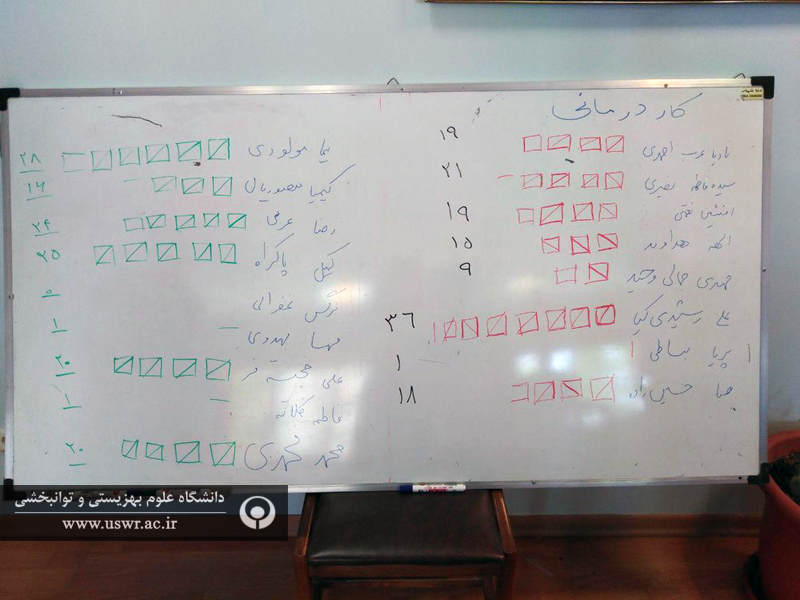 کار درمانی
نادیا عرب احمدی ۱۹
سیده فاطمه نصیری ۲۱
افشین فتحی ۱۹
الهه هداوند ۱۵
مهدی جمالی وحید ۹
علی رشیدی کیا ۳۶
پریا بساطی ۱
صبا حسین زاده ۱۸
نیما مولودی ۲۸
کیمیا منصوریان ۱۶
رضا عربی ۲۴
کمیل پاکراه ۲۵
نرگس غفرالی ۰
مهسا مهدوی ۱
علی خجسته فر ۲۰
فاطمه کلاته ۱
محمد محمدی ۲۰
دانشگاه علوم بهزیستی و توانبخشی
www.uswr.ac.ir